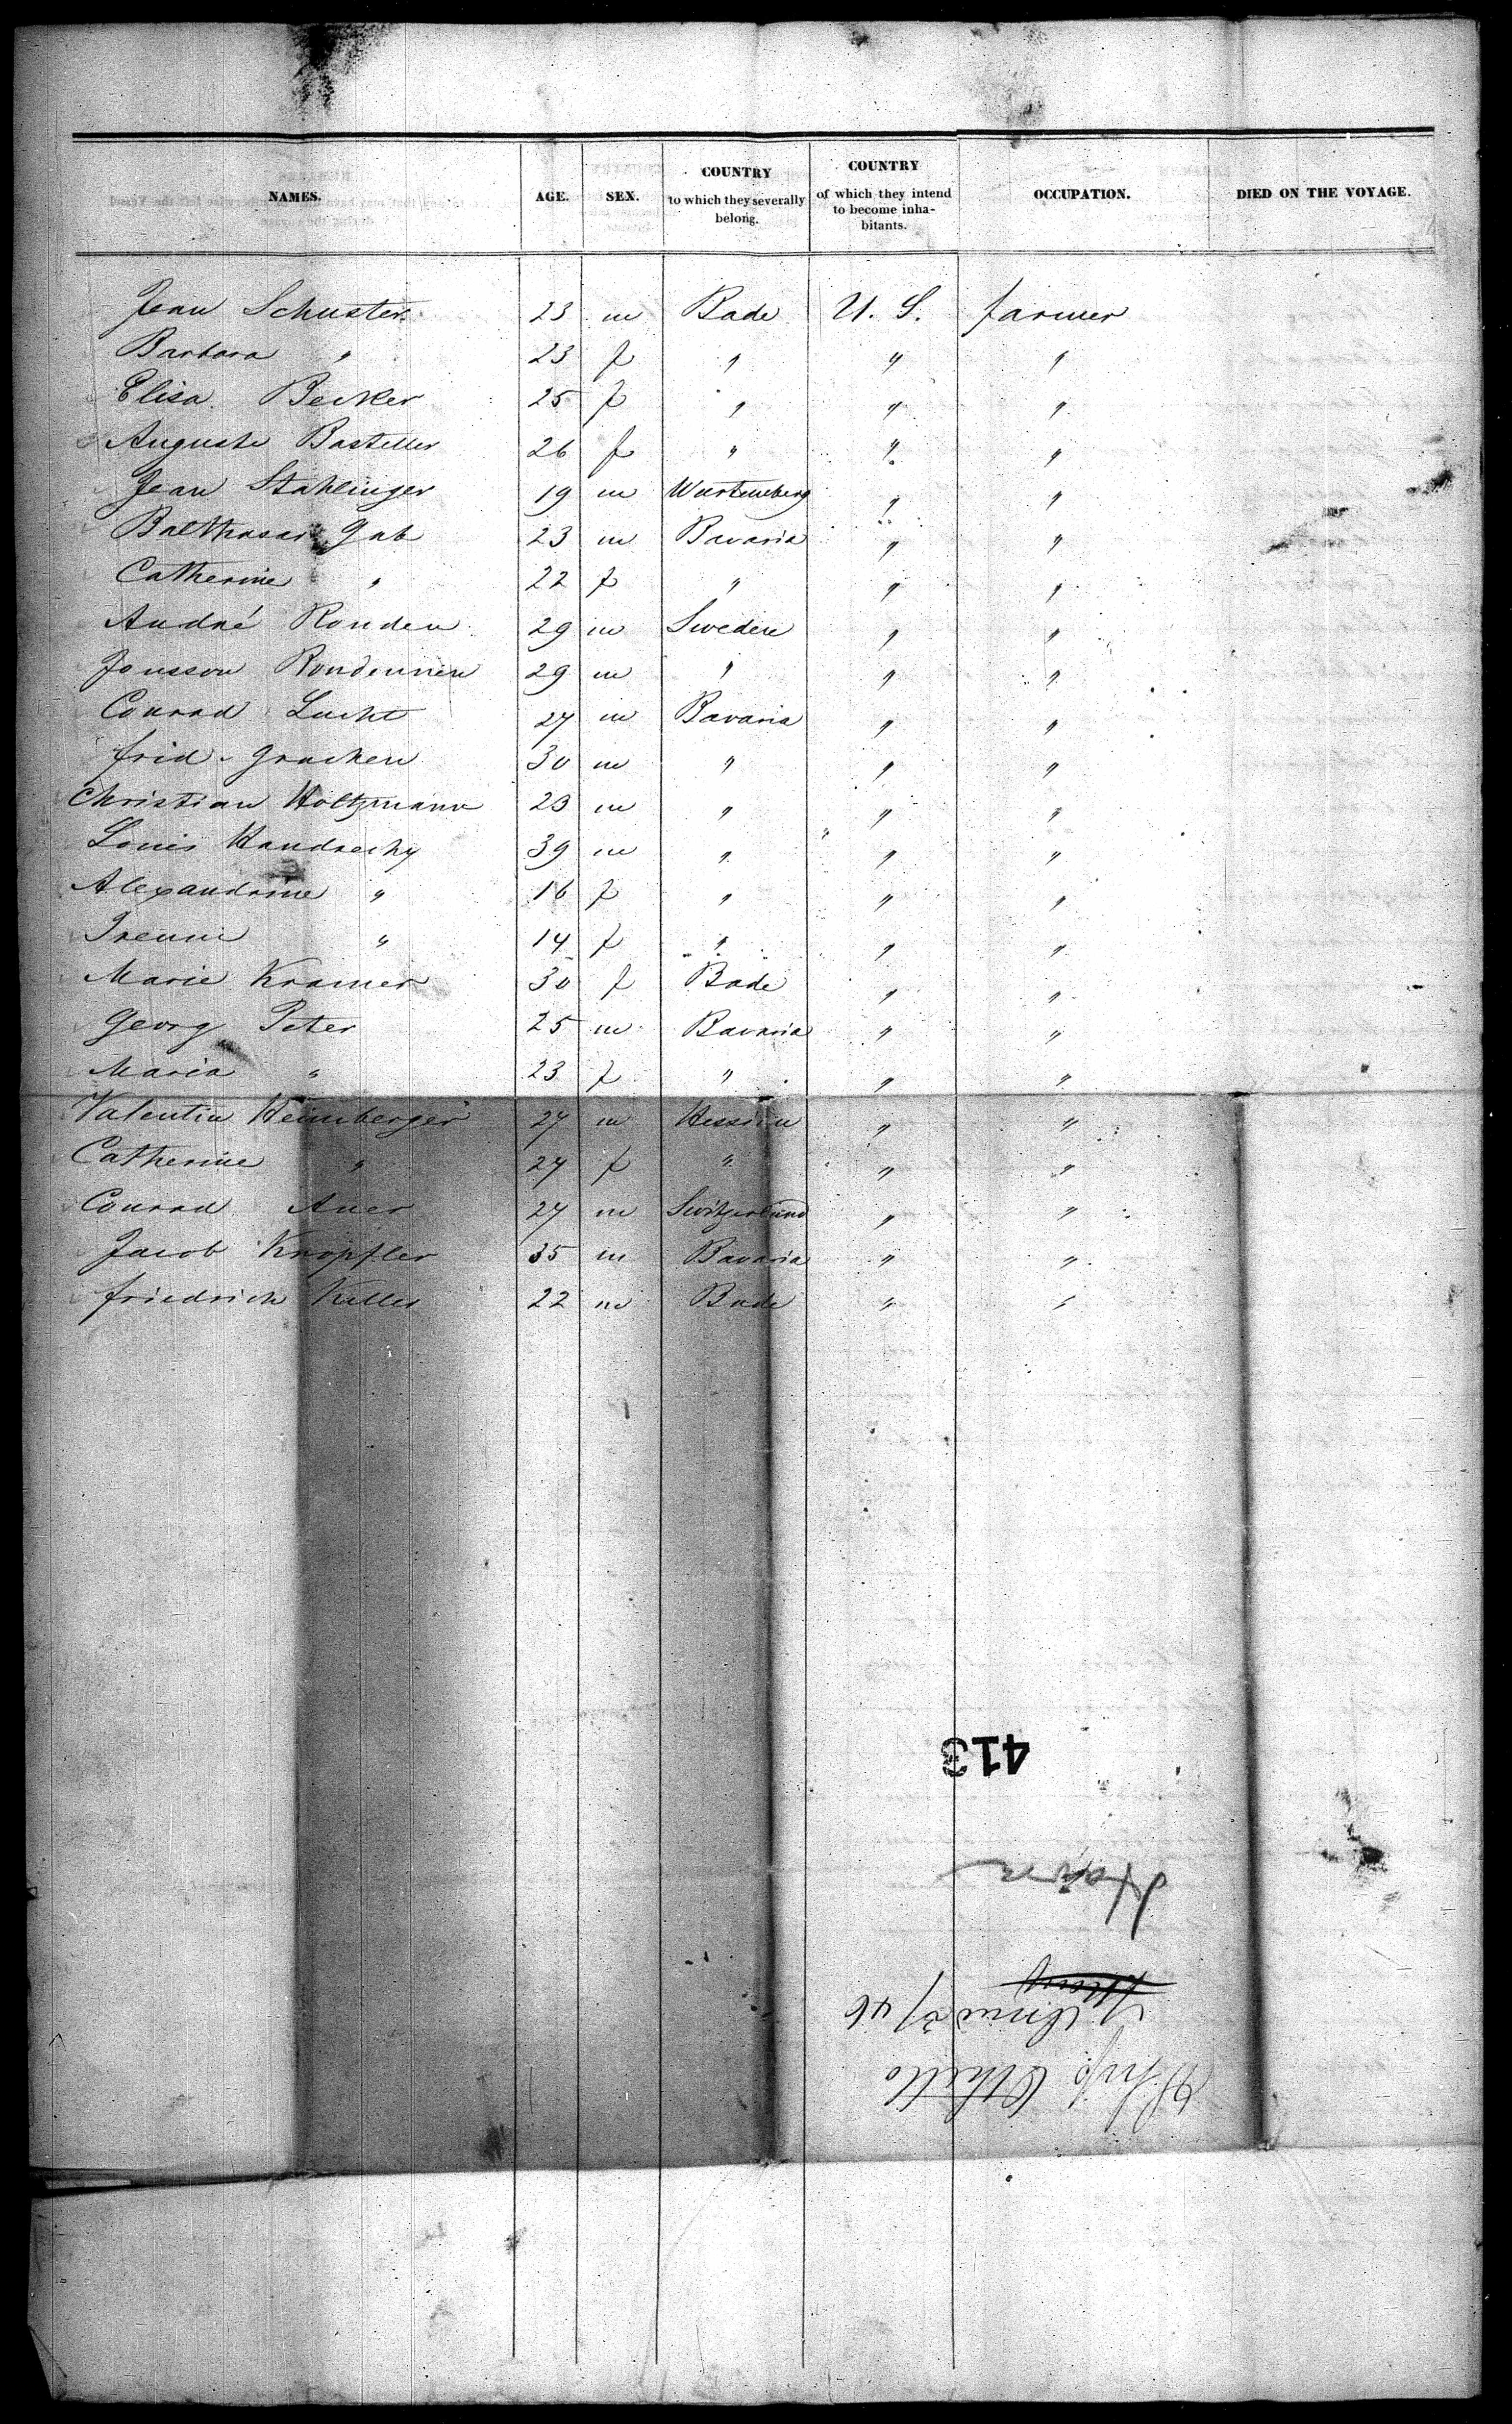 NAMES. AGE. SEX. COUNTRY to which they severally belong. COUNTRY of which they intend to become inhabitants. OCCUPATION. DIED ON THE VOYAGE.
Jean Schuster 23 m Bade U. S. farmer
Barbara " 23 f " " "
Elisa Becker 25 f " " "
Auguste Basteller 26 f " " "
Jean Stahlinger 19 m Wurtemberg " "
Balthasar Gab 23 m Bavaria " "
Catherine " 22 f " " "
André Ronden 29 m Sweden " "
Jonsson 29 m " " "
Conrad Lucht 27 m Bavaria " "
frid. 30 m " " "
Christian Holtzmann 23 m " " "
Louis 39 m " " "
Alexandrine " 16 f " " "
" 14 f " " "
Marie Kramer 30 f Bade " "
Georg Peter 25 m Bavaria " "
Maria " 23 f " " "
Valentin Heimberger 27 m " "
Catherine " 27 f " " "
Conrad Auer 27 m Switzerland " "
Jacob Knopfler 35 m Bavaria " "
friedrich Keller 22 m Bade " "
413
Ship Othello